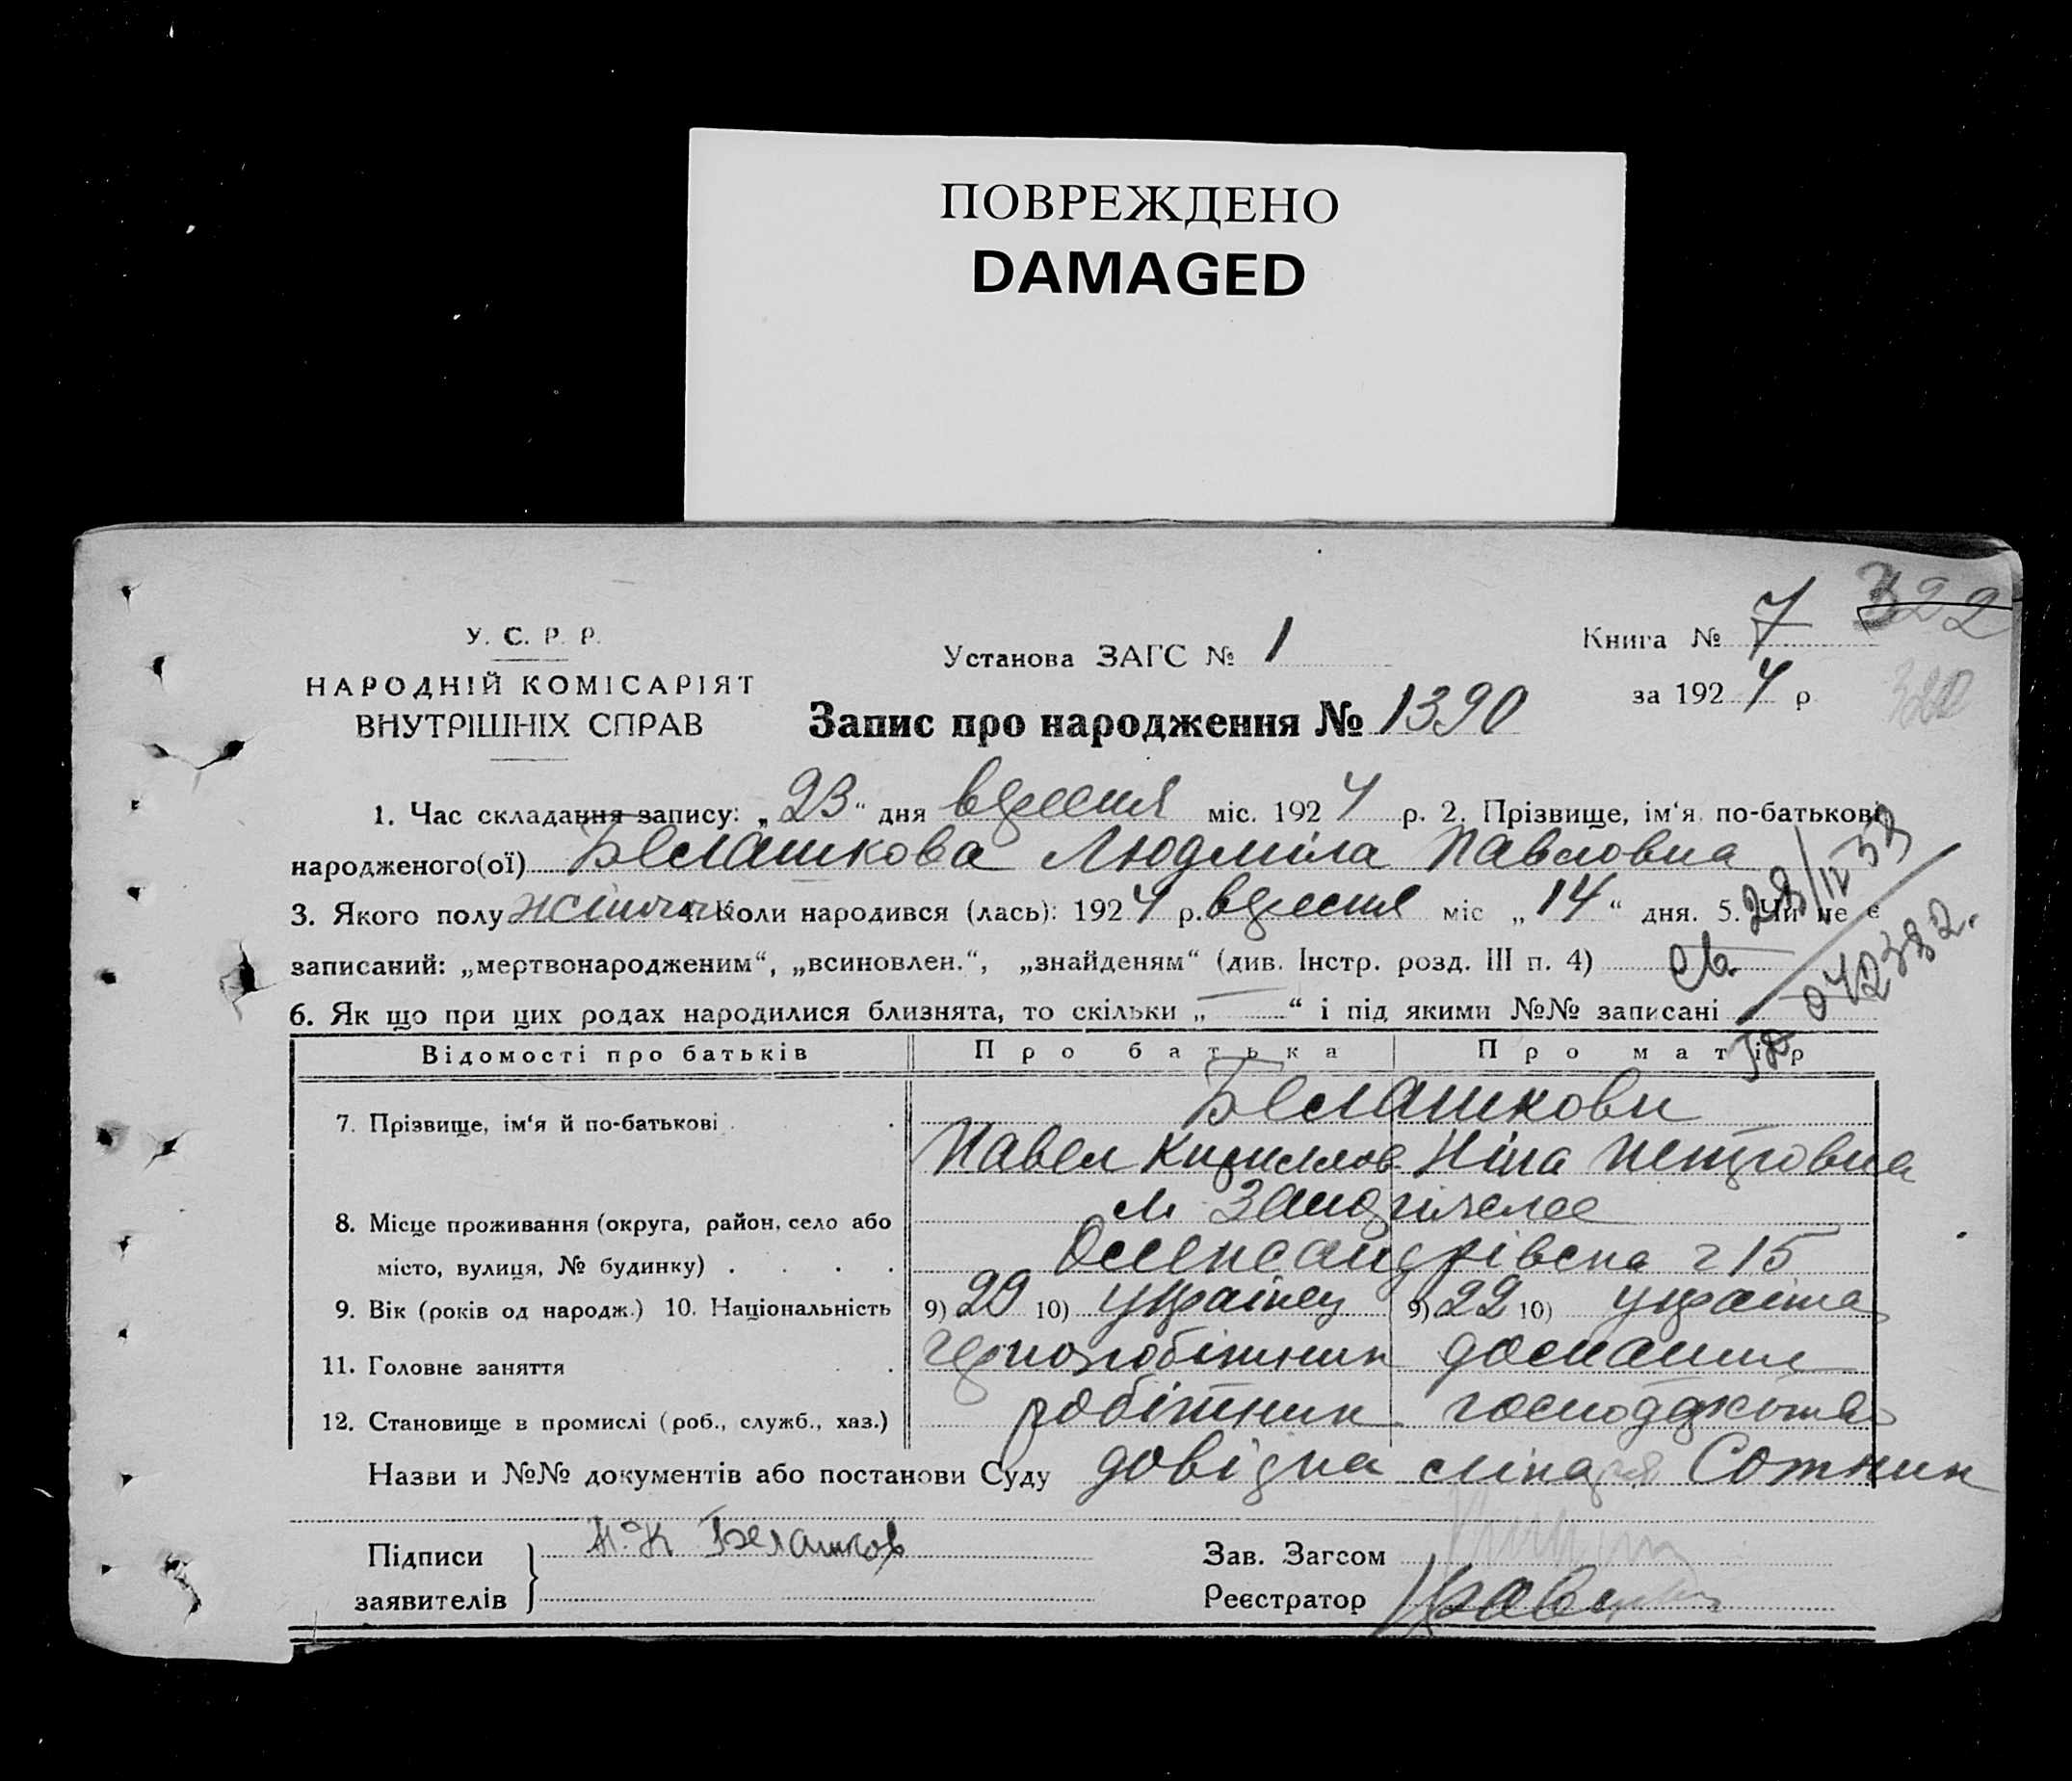 ПОВРЕЖДЕНО
DAMAGED
У. С. Р. Р.
НАРОДНІЙ КОМІСАРІЯТ
ВНУТРІШНІХ СПРАВ
Установа ЗАГС № 1
Книга № 7 322
за 1924 р 320
Запис про народження № 1390
1. Час складання запису: „23“ дня вересня міс. 1924 р. 2. Прізвище, ім‘я по-батькові
народженого(ої) Белашкова Людміла Павловна
3. Якого полу жіноч. 4. Коли народився (лась): 1924 р. вересня міс „14“ дня. 5. Чи не є
записаний: „мертвонародженим“, „всиновлен.“, „знайденям“ (див. Інстр. розд. III п. 4)
28/IV 33
042382.
6. Як що при цих родах народилися близнята, то скільки „ — “ і під якими №№ записані
Відомості про батьків Про батька Про матір
7. Прізвище, ім‘я й по-батькові Белашкови
Павел Кирилов Ніна Петровна
8. Місце проживання (округа, район, село або м. Запоріжжє
місто, вулиця, № будинку) Олександрівська 15
9. Вік (років од народж.) 10. Національність 9) 29 10) українец 9) 22 10) українка
11. Головне заняття чорноробітник домашня
12. Становище в промислі (роб., служб., хаз.) робітник господарка
Назви и №№ документів або постанови Суду довідка лікаря Сотник
Підписи Белашков Зав. Загсом
заявителів Реєстратор